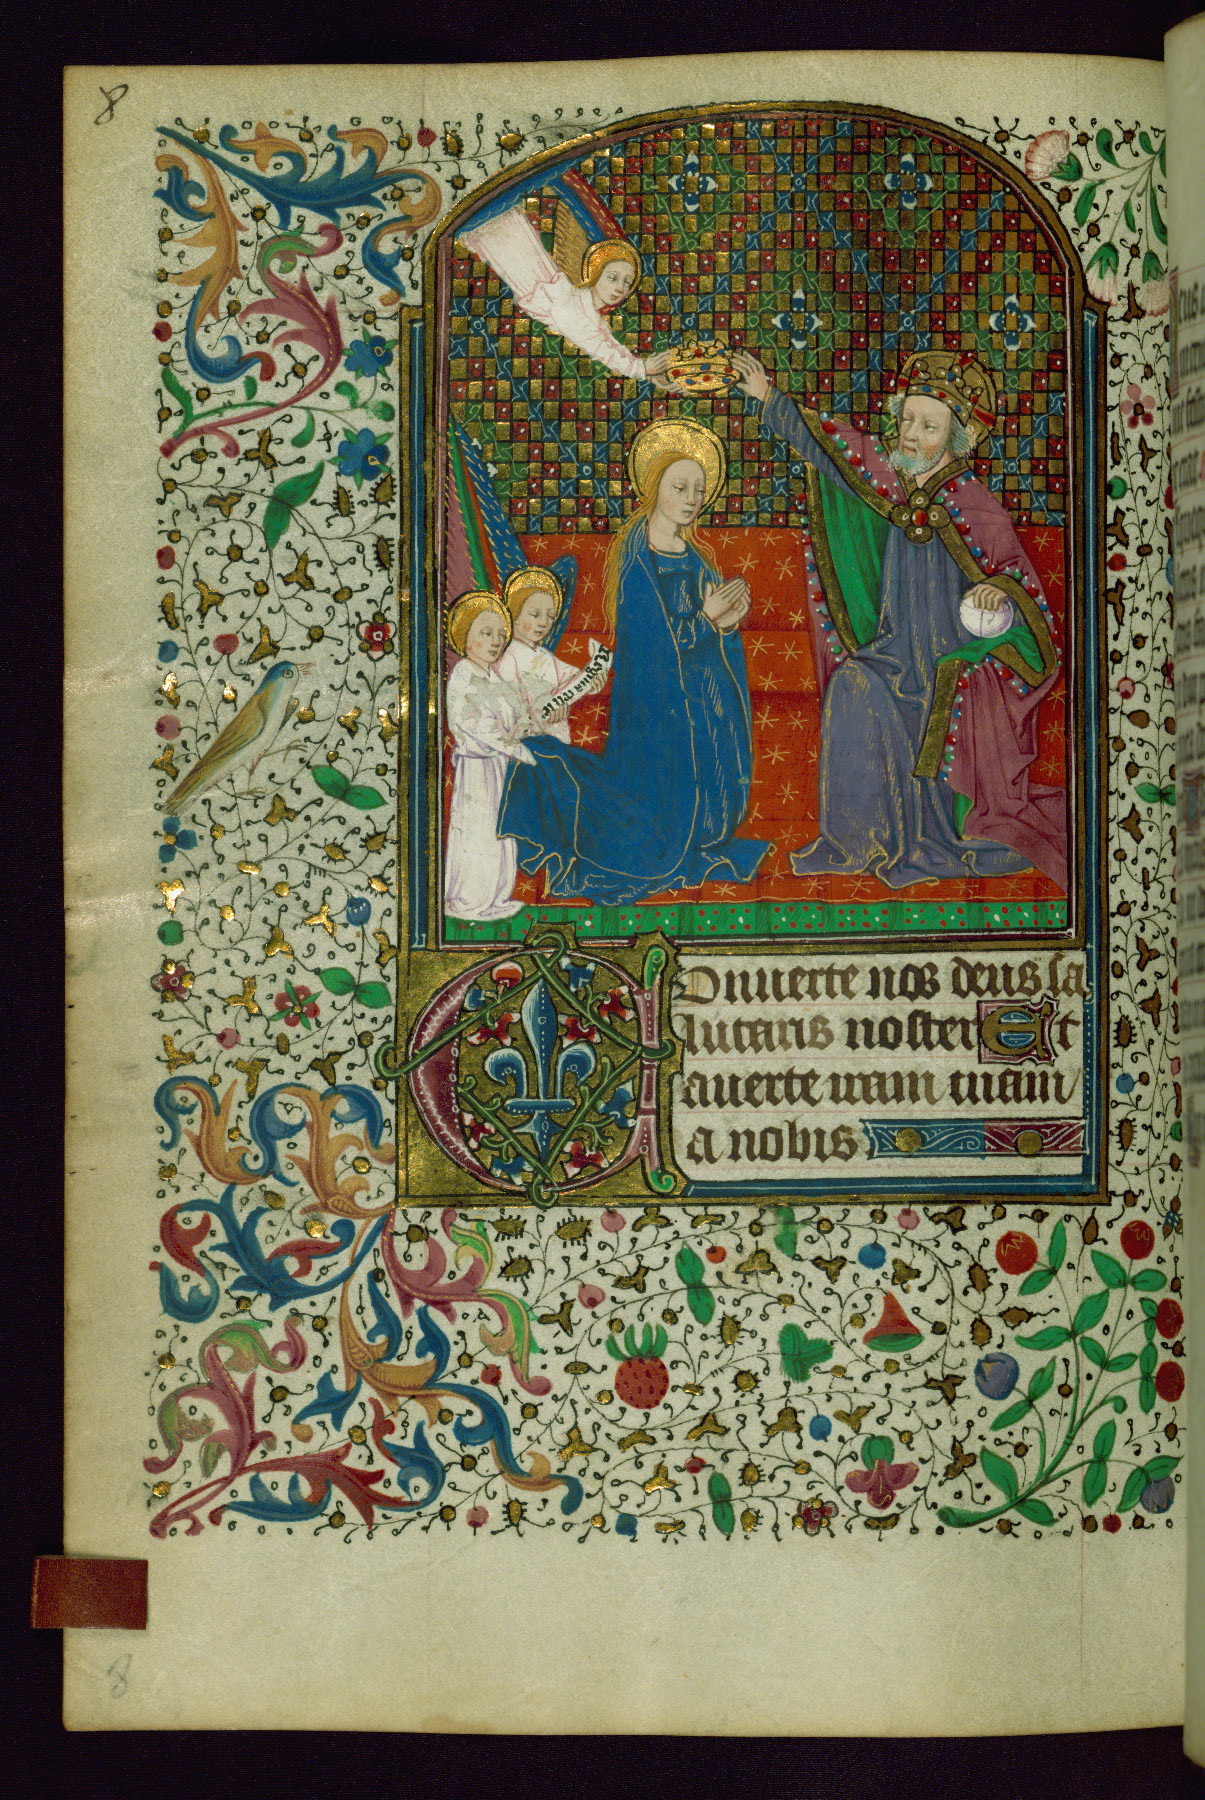 8
Conuerte nos deus sa
lutaris noster Et
auerte iram tuam
a nobis
8